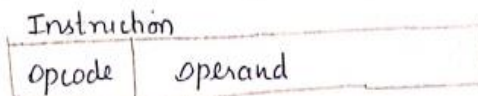 Instruction
Opcode operand